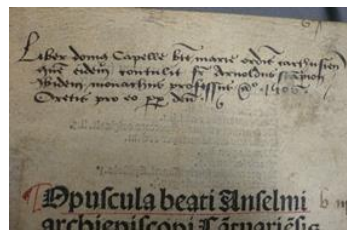 Liber domus Capelle btē marie ordīs carthusien
quē eidem contulit fr Arnoldus
Ibidem monachus professus aº 1506
Oretis pro eo ꝓꝑ deū
¶Opuscula beati Anselmi
archiepiscopi Cātuariēsis